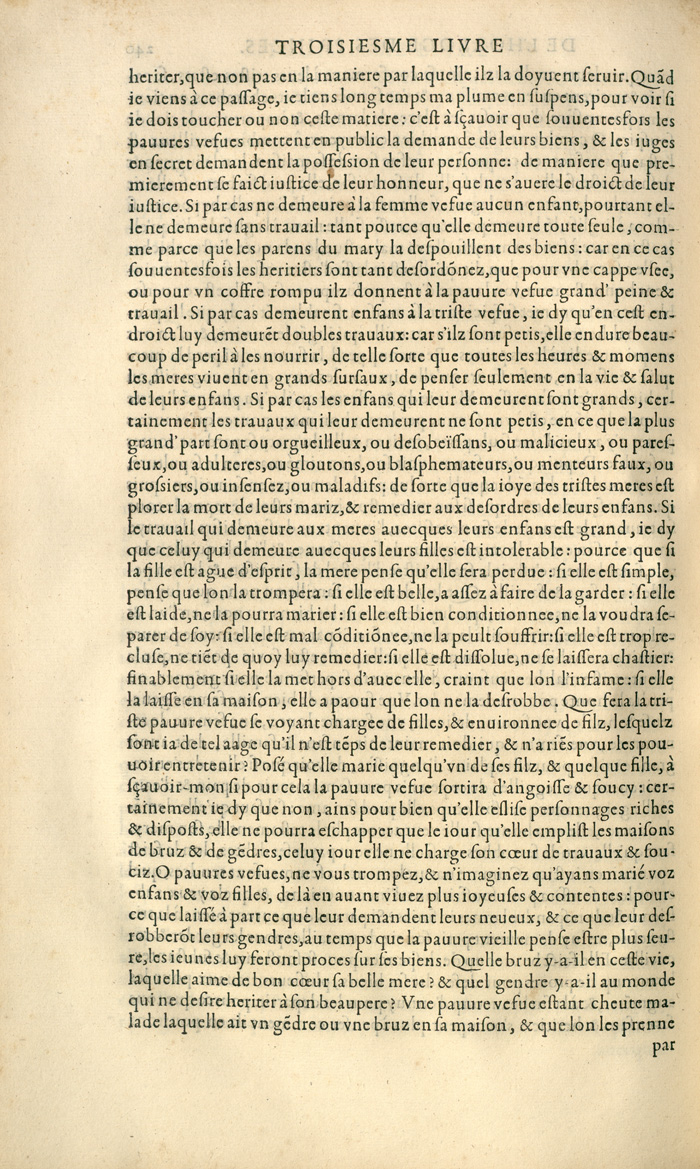 TROISIESME LIVRE
heriter,que non pas en la maniere par laquelle ilz la doyuent ſeruir.Quãd
ie viens à ce paſſage, ie tiens long temps ma plume en ſuſpens,pour voir ſi
ie dois toucher ou non ceſte matiere: c'eſt à ſçauoir que ſouuentesfois les
pauures vefues mettent en public la demande de leurs biens, & les iuges
en ſecret demandent la poſſeſſion de leur perſonne: de maniere que pre-
mierement ſe faict iuſtice de leur honneur, que ne s'auere le droict de leur
iuſtice. Si par cas ne demeure à la femme vefue aucun enfant,pourtant el-
le ne demeure ſans trauail : tant pource qu'elle demeure toute ſeule, com-
me parce que les parens du mary la deſpouillent des biens : car en ce cas
ſouuentesfois les heritiers ſont tant deſordõnez,que pour vne cappe vſee,
ou pour vn coffre rompu ilz donnent à la pauure vefue grand' peine &
trauail . Si par cas demeurent enfans à la triſte vefue, ie dy qu'en ceſt en-
droict luy demeurẽt doubles trauaux: car s'ilz ſont petis,elle endure beau-
coup de peril à les nourrir, de telle ſorte que toutes les heures & momens
les meres viuent en grands ſurſaux, de penſer ſeulement en la vie & ſalut
de leurs enfans. Si par cas les enfans qui leur demeurent ſont grands, cer-
tainement les trauaux qui leur demeurent ne ſont petis, en ce que la plus
grand' part ſont ou orgueilleux, ou deſobeïſſans, ou malicieux, ou pareſ-
ſeux,ou adulteres,ou gloutons,ou blaſphemateurs,ou menteurs faux, ou
groſſiers,ou inſenſez,ou maladifs: de ſorte que la ioye des triſtes meres eſt
plorer la mort de leurs mariz,& remedier aux deſordres de leurs enfans. Si
le trauail qui demeure aux meres auecques leurs enfans eſt grand, ie dy
que celuy qui demeure auecques leurs filles eſt intolerable : pource que ſi
la fille eſt ague d'eſprit, la mere penſe qu'elle ſera perdue : ſi elle eſt ſimple,
penſe que lon la trompera : ſi elle eſt belle,a aſſez à faire de la garder : ſi elle
eſt laide,ne la pourra marier : ſi elle eſt bien conditionnee,ne la voudra ſe-
parer de ſoy: ſi elle eſt mal cõditiõnee,ne la peult ſouffrir:ſi elle eſt trop re-
cluſe,ne tiẽt de quoy luy remedier:ſi elle eſt diſſolue,ne ſe laiſſera chaſtier:
finablement ſi elle la met hors d'auec elle, craint que lon l'infame : ſi elle
la laiſſe en ſa maiſon, elle a paour que lon ne la deſrobbe. Que fera la tri-
ſte pauure vefue ſe voyant chargee de filles,& enuironnee de filz, leſquelz
ſont ia de tel aage qu'il n'eſt tẽps de leur remedier, & n'a riẽs pour les pou-
uoir entretenir ? Poſé qu'elle marie quelqu'vn de ſes filz, & quelque fille, à
ſçauoir-mon ſi pour cela la pauure vefue ſortira d'angoiſſe & ſoucy : cer-
tainement ie dy que non, ains pour bien qu'elle eſliſe perſonnages riches
& diſpoſts, elle ne pourra eſchapper que le iour qu'elle emplit les maiſons
de bruz & de gẽdres,celuy iour elle ne charge ſon cœur de trauaux & ſou-
ciz.O pauures vefues,ne vous trompez,& n'imaginez qu'ayans marié voz
enfans & voz filles, de là en auant viuez plus ioyeuſes & contentes : pour-
ce que laiſſé à part ce que leur demandent leurs neueux, & ce que leur deſ-
robberõt leurs gendres,au temps que la pauure vieille penſe eſtre plus ſeu-
re,les ieunes luy feront proces ſur ſes biens. Quelle bruz y-a-il en ceſte vie,
laquelle aime de bon cœur ſa belle mere ? & quel gendre y-a-il au monde
qui ne deſire heriter à ſon beaupere ? Vne pauure vefue eſtant cheute ma-
lade laquelle ait vn gẽdre ou vne bruz en ſa maiſon, & que lon les prenne
par